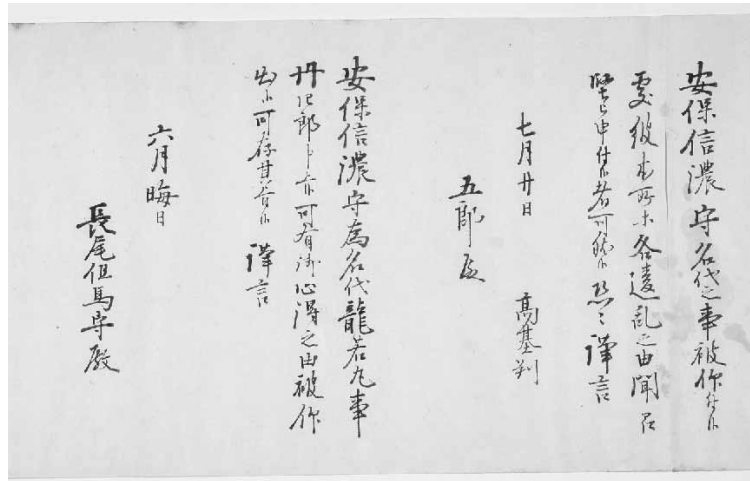 安保信濃守名代之事被仰付候
処彼本所ホ各違乱之由聞召
堅申付候者可然候恐々謹言
七月廿日
高基判
五郎殿
安保信濃守為名代龍若丸事
丹四郎卜亦可有御心得之由被仰
出候可存其旨候謹言
六月晦日
長尾但馬守殿